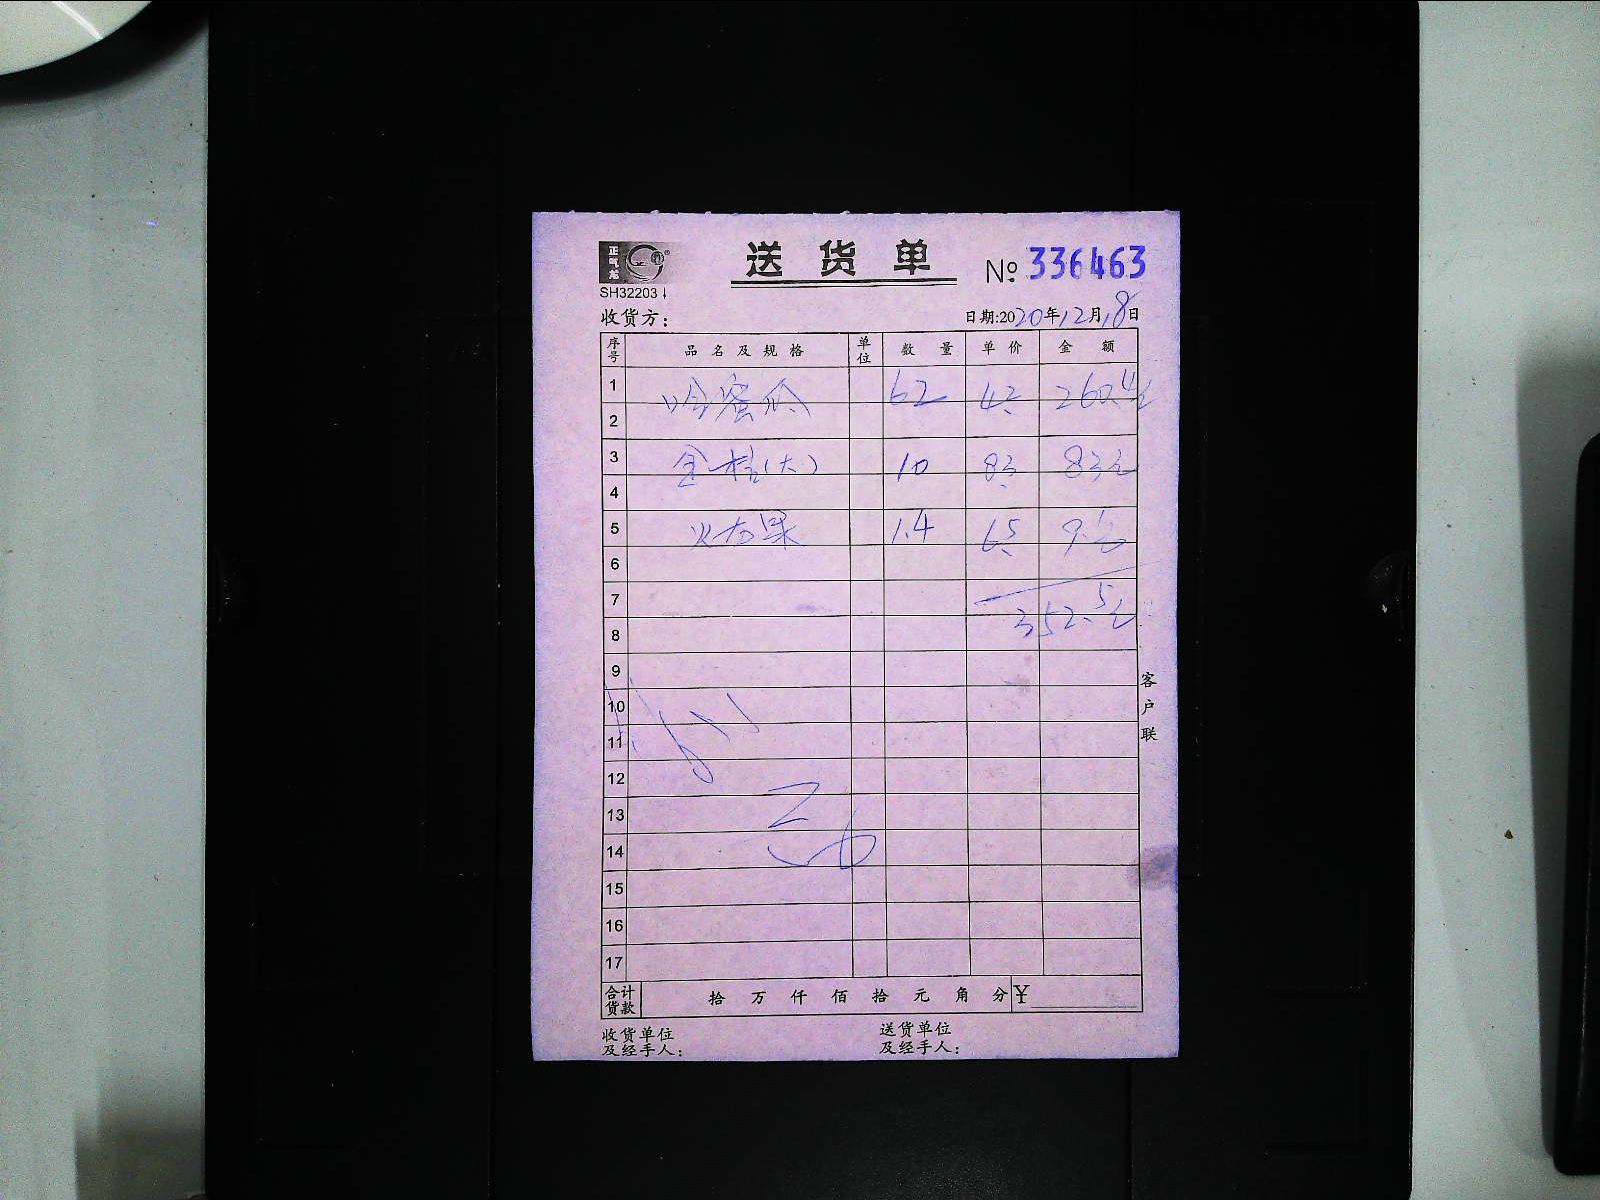 正气龙
送货单 № 336463
SH32203
收货方： 日期:2020年12月18日
序号 品名及规格 单位 数量 单价 金额
1 哈蜜瓜 62 4.2 260.4元
2
3 金桔(大) 10 8.3 83元
4
5 火龙果 1.4 6.5 9.1元
6
7 352.5元
8
9
10
11
12
13
14
15
16
17
合计货款 拾 万 仟 佰 拾 元 角 分 ¥
收货单位及经手人： 送货单位及经手人：
客户联